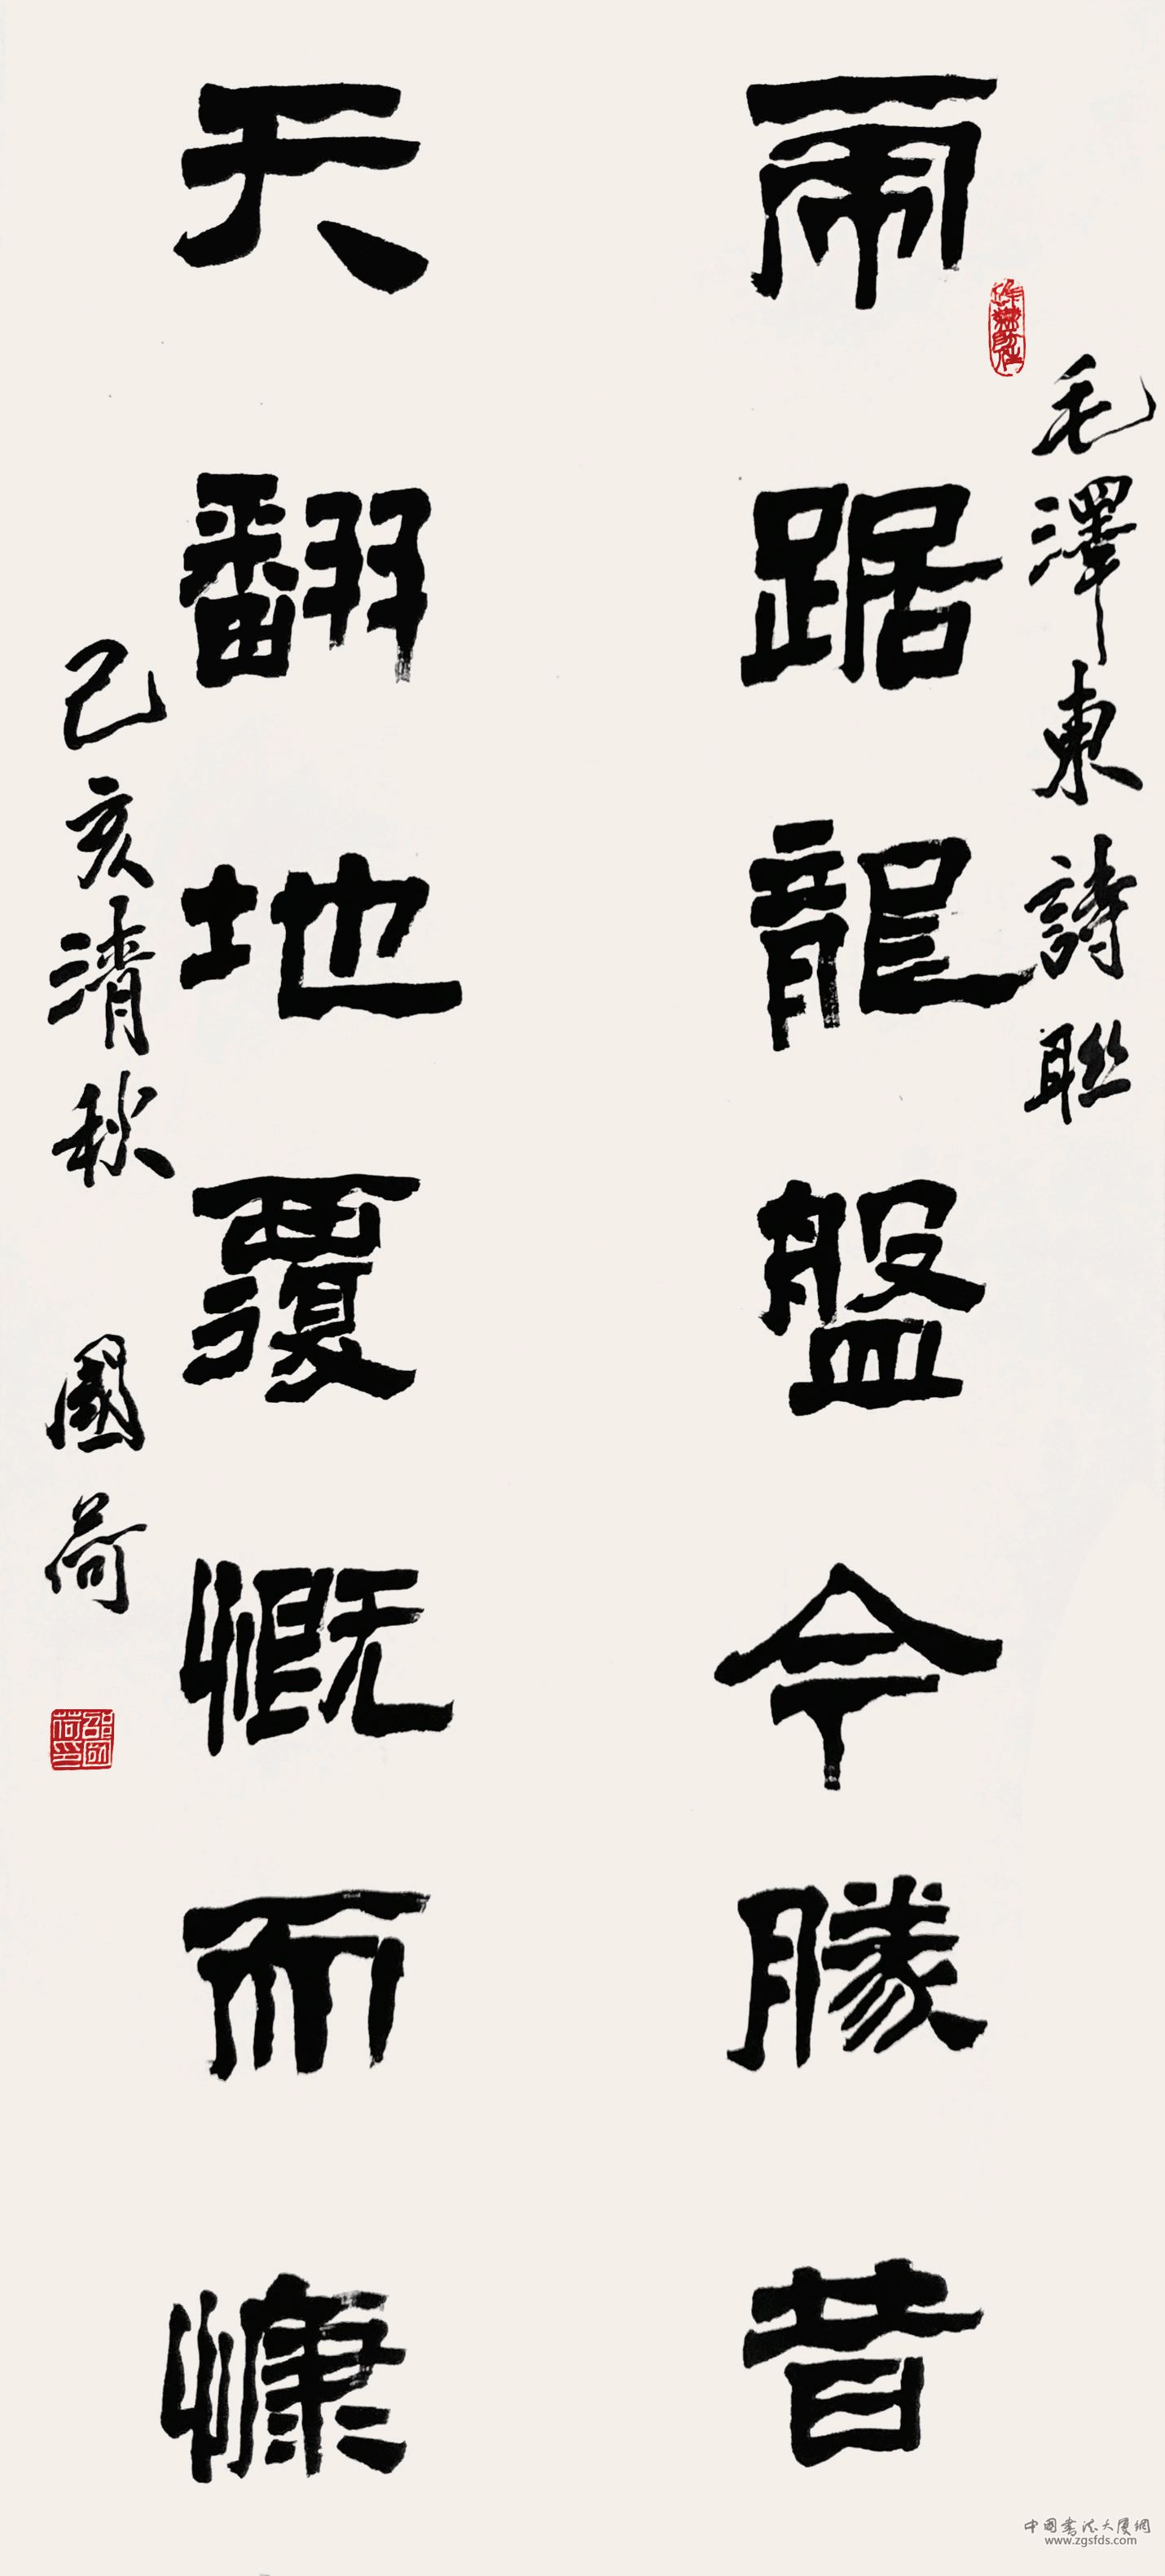 毛澤東詩聯
乕踞龍盤今勝昔
天翻地覆慨而慷
己亥清秋 國荷
邵國荷印
中国書法大廈網
www.zgsfds.com